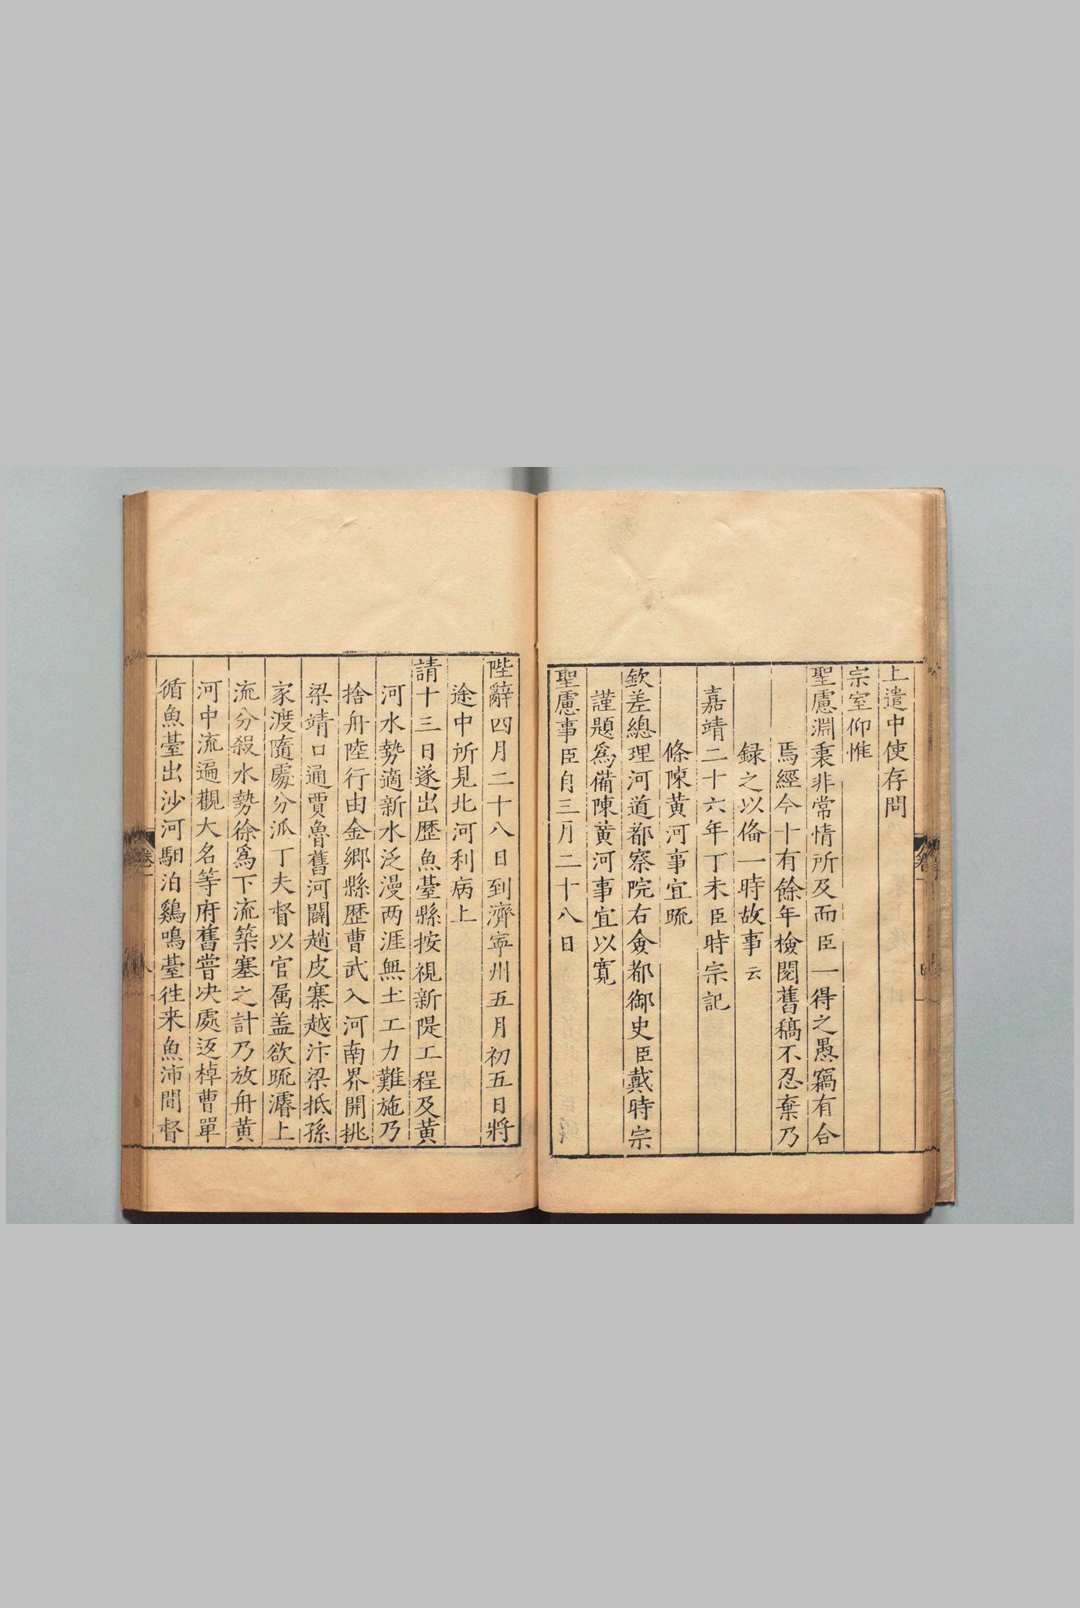 上遣中使存問
宗室仰惟
聖慮淵秉非常情所及而臣一得之愚竊有合
焉經今十有餘年檢閱舊稿不忍棄乃
録之以俻一時故事云
嘉靖二十六年丁未臣時宗記
條陳黄河事宜疏
欽差總理河道都察院右僉都御史臣戴時宗
謹題爲備陳黄河事宜以寛
聖慮事臣自三月二十八日
陛辭四月二十八日到濟寧州五月初五日將
途中所見北河利病上
請十三日遂出歷魚臺縣按視新隄工程及黄
河水勢適新水泛漫两涯無土工力難施乃
捨舟陸行由金鄉縣歷曹武入河南界開挑
梁靖口通賈魯舊河關趙皮寨越汴梁抵孫
家渡隨處分派丁夫督以官属盖欲疏濬上
流分殺水勢徐爲下流築塞之計乃放舟黄
河中流遍觀大名等府舊嘗决處返棹曹單
循魚臺出沙河駟泊鷄鳴臺徃来魚沛間督
卷一